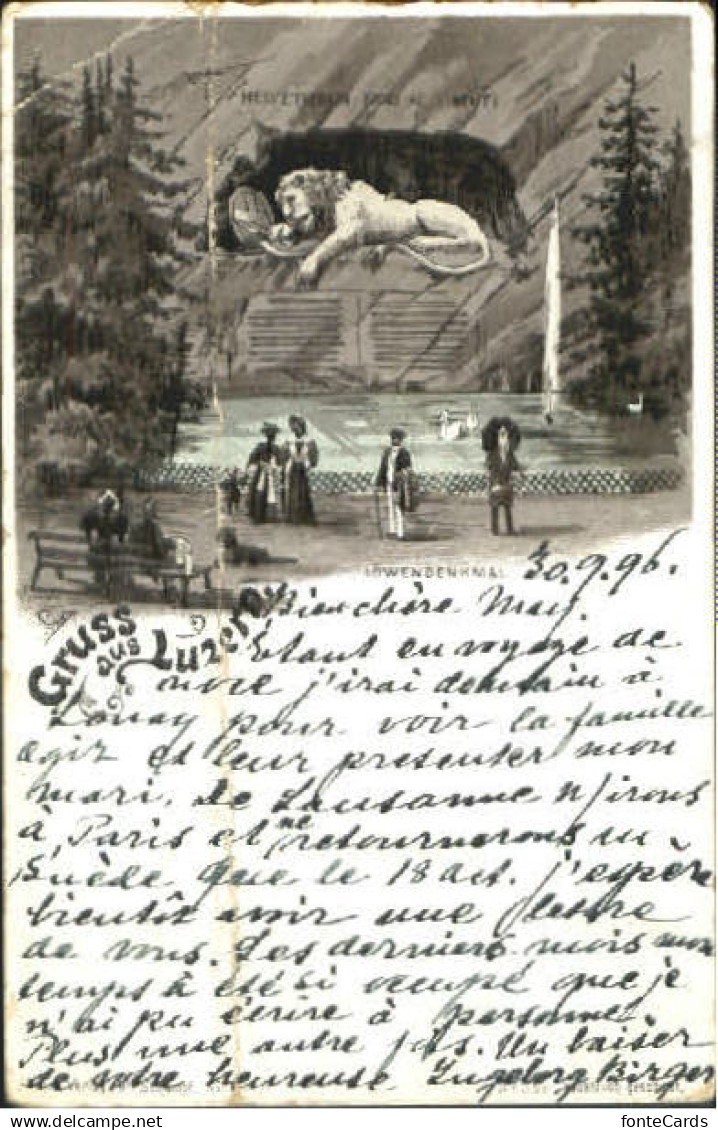 HELVETIORUM FIDEI AC VIRTUTI
LÖWENDENKMAL
Gruss
aus
Luzern
30.9.96.
Bien chère May,
Etant en voyage de
noce j'irai demain à
pour voir la famille
et leur presenter mon
mari. De Lausanne n/irons
à Paris et ne retournerons en
Suède que le 18 Oct. j'espère
bientôt avoir une lettre
de vous. Les derniers mois mon
temps a été si occupé que je
n'ai pu écrire à personne.
Plus une autre fois. Un baiser
de votre heureuse Ingeborg Birger
fonteCards